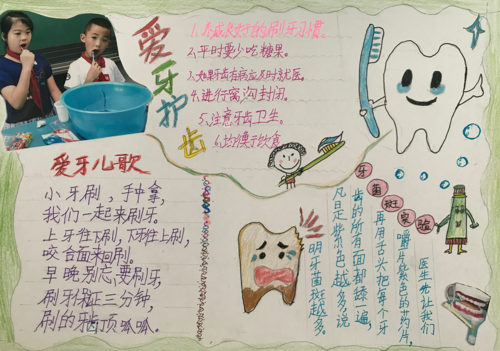 爱牙护齿
1.养成良好的刷牙习惯。
2.平时要少吃糖果。
3.如果牙齿有病应及时就医。
4.进行窝沟封闭。
5.注意牙齿卫生。
6.均衡饮食
爱牙儿歌
小牙刷,手中拿,
我们一起来刷牙。
上牙往下刷,下牙往上刷,
咬合面来回刷。
早晚别忘要刷牙,
刷牙保证三分钟,
刷的牙齿顶呱呱。
牙菌斑实验
医生先让我们
嚼片紫色的药片,
再用舌头把每个牙
齿的所有面都舔一遍,
凡是紫色越多,说
明牙菌斑越多。